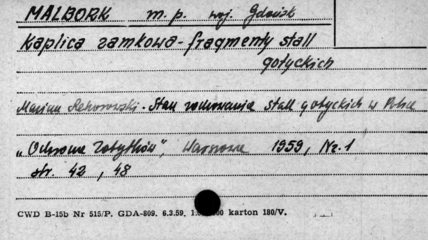 MALBORK m. p. woj. Gdańsk
Kaplica zamkowa - fragmenty stall
gotyckich
Marian - Stan zachowania stall gotyckich w Polsce
„Ochrona Zabytków", Warszawa 1959, Nr. 1
str. 42, 48
CWD B-15b Nr 515/P. GDA-809. 6.3.59. karton 180/V.